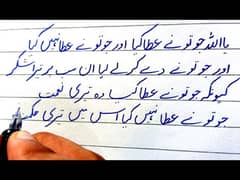 یا اللہ جو تو نے عطا کیا اور جو تو نے عطا نہیں کیا
اور جو تو نے دے کر لے لیا ان سب پر تیرا شکر
کیونکہ جو تو نے عطا کیا وہ تیری نعمت
جو تو نے عطا نہیں کیا اس میں تیری حکمت